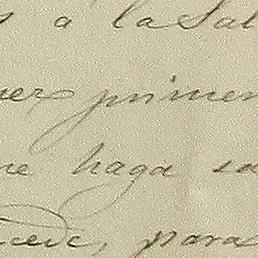 s a la Sal
uer primer
ne haga sa
cede, para